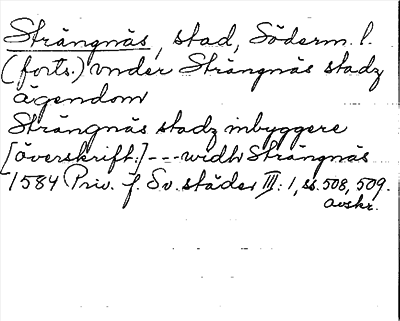 Strängnäs, stad, Söderm. l.
(forts.) vnder Strängnäs stadz
ägendom
Strängnäs stadz inbyggere
[överskrift.] --- widh Strängnäs
1584 Priv. f. Sv. städer III: 1, ss. 508, 509.
avskr.